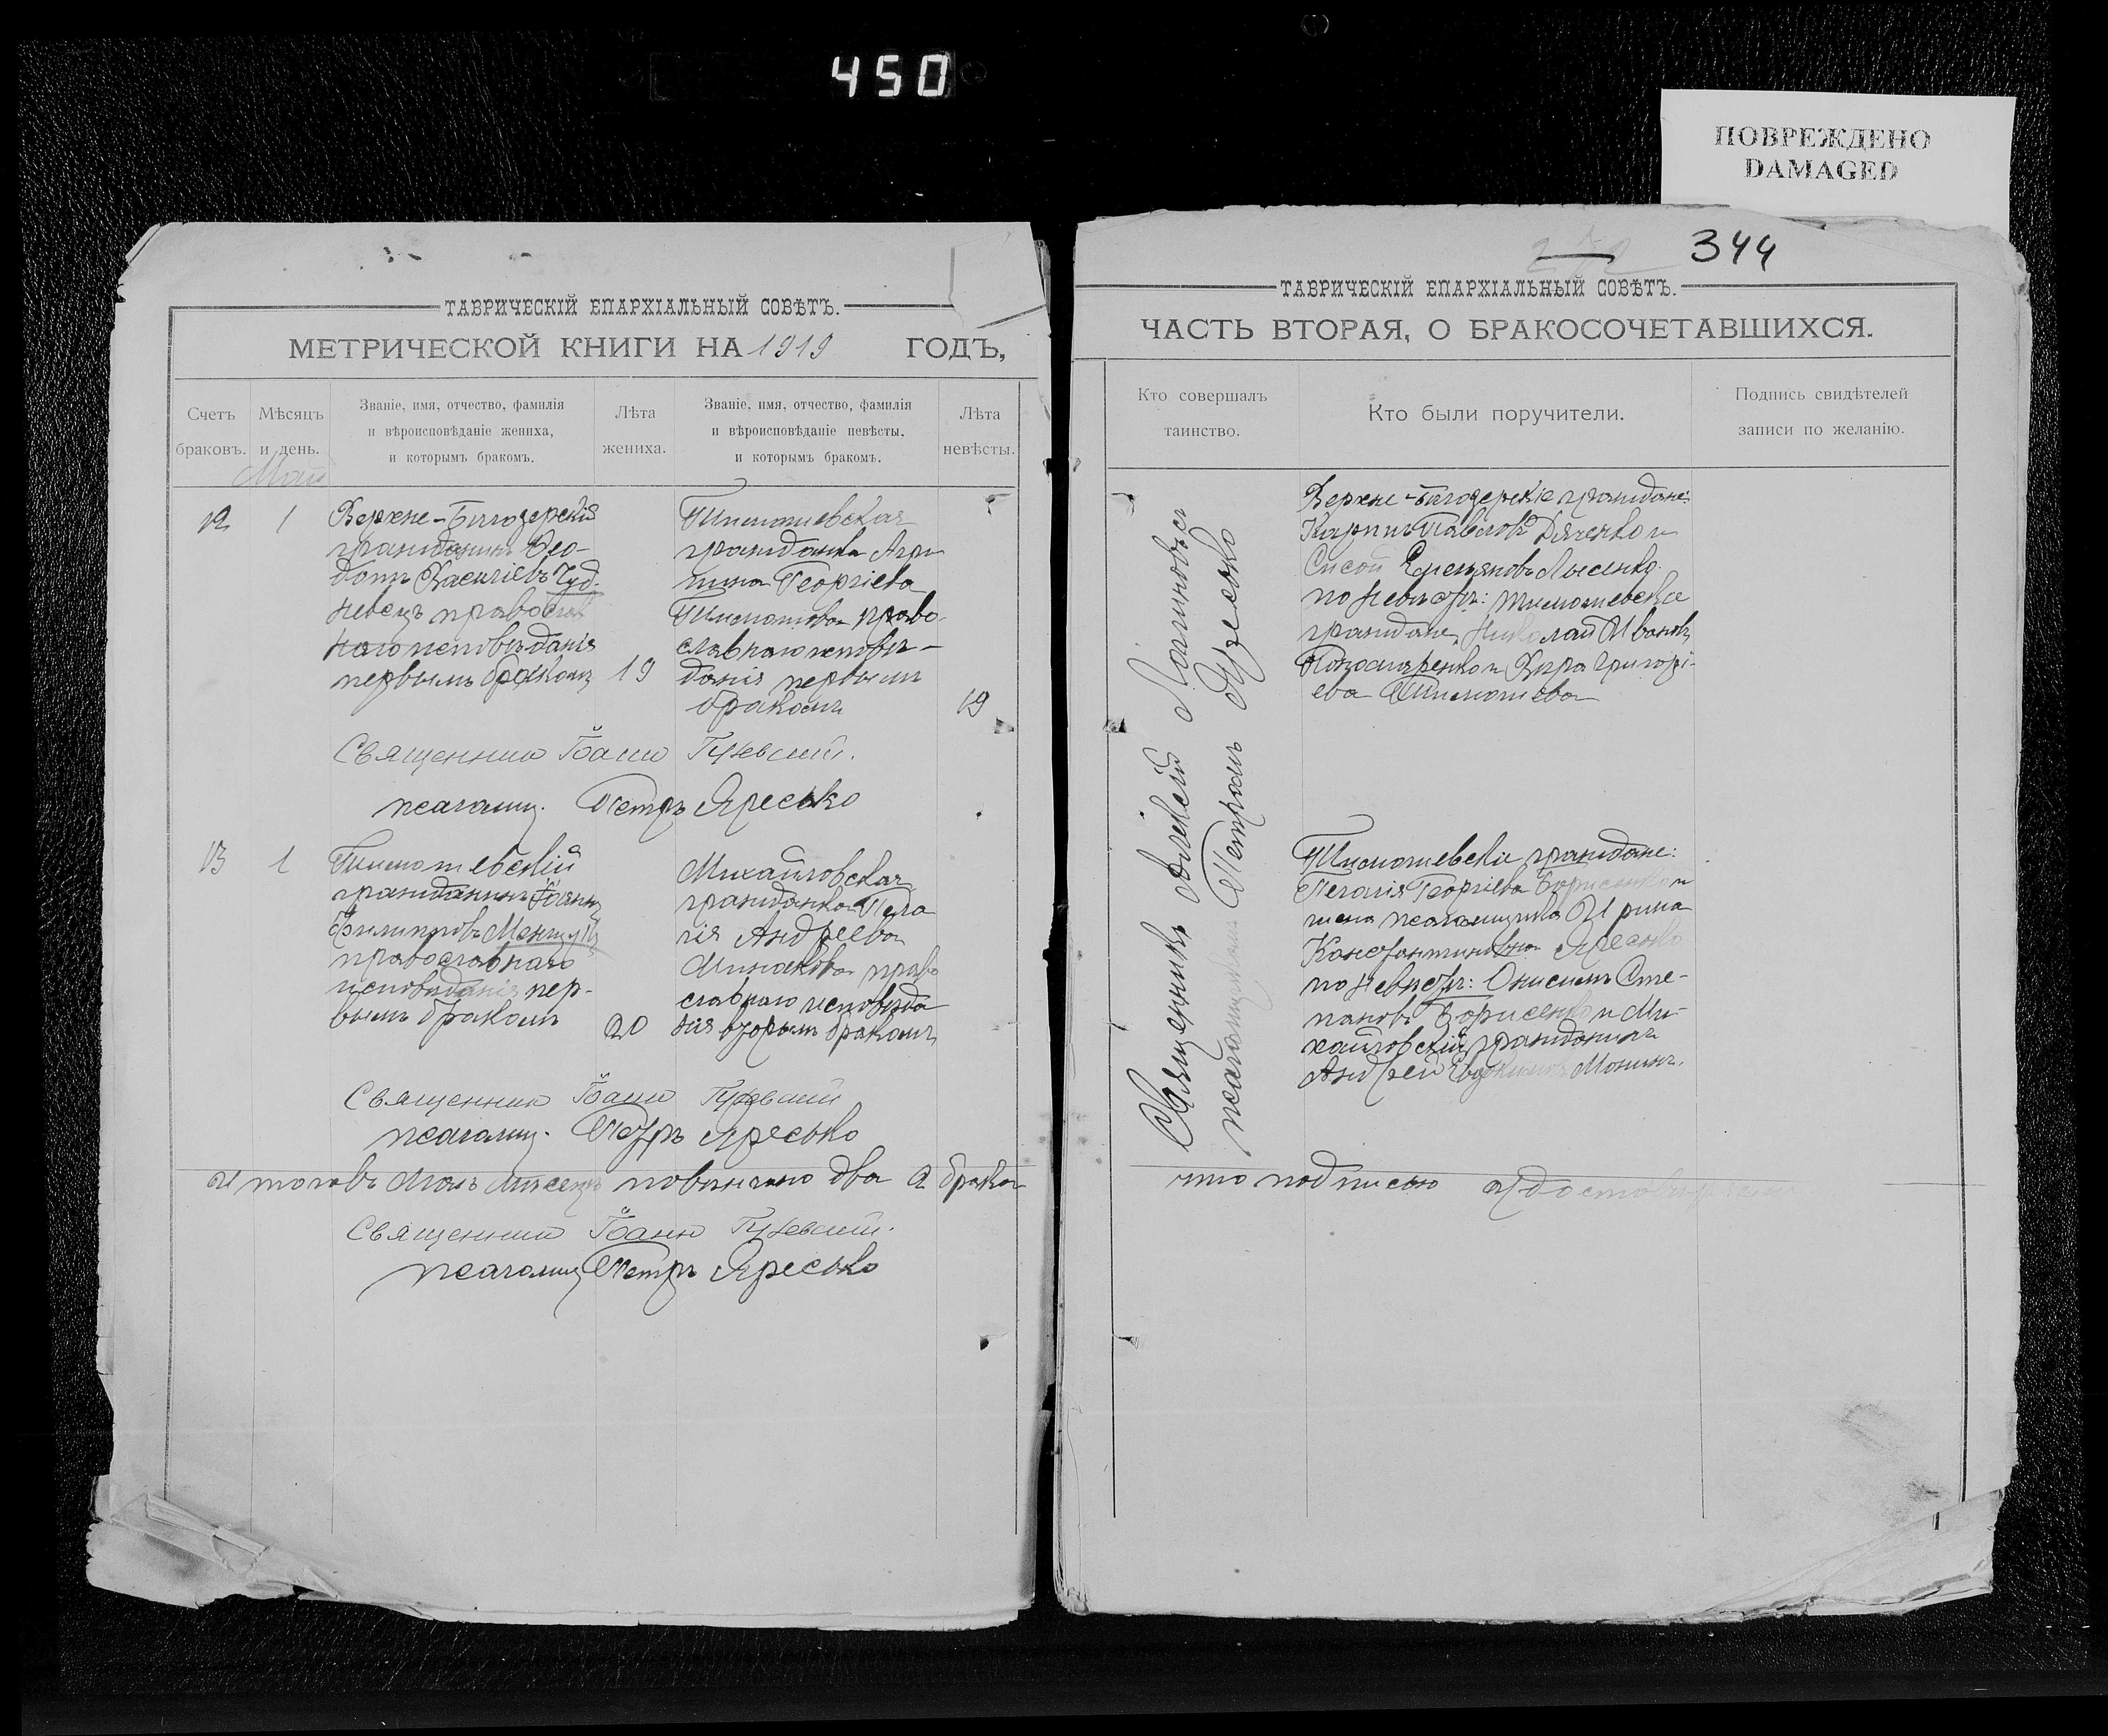 450
ПОВРЕЖДЕНО
DAMAGED
344
ТАВРИЧЕСКІЙ ЕПАРХІАЛЬНЫЙ СОВѢТЪ.
МЕТРИЧЕСКОЙ КНИГИ НА 1919 ГОДЪ,
Счетъ браковъ.
Мѣсяцъ и день.
Званіе, имя, отчество, фамилія
и вѣроисповѣданіе жениха,
и которымъ бракомъ.
Лѣта жениха.
Званіе, имя, отчество, фамилія
и вѣроисповѣданіе невѣсты.
и которымъ бракомъ.
Лѣта невѣсты.
Май
12
1
Верхне-Бѣлозерскій
гражданинъ Ѳео-
дотъ Васильевъ Чуд-
невецъ православ
наго исповѣданія
первымъ бракомъ
19
Тимошевская
гражданка Агри
пина Георгіева
Тимошева право-
славнаго исповѣ-
данія первымъ
бракомъ
19
Священник Іоанн
псаломщ. Петръ Яресько
13
1
Тимошевскій
гражданинъ Іоаннъ
Филипповъ
православнаго
исповѣданія пер-
вымъ бракомъ
20
Михайловская
гражданка Пела
гія Андреева
Минакова право
славнаго исповѣда
нія вторымъ бракомъ
Священник Іоанн
псаломщ. Петръ Яресько
Итого въ Маѣ мѣсяцѣ повѣнчано два 2 брака
Священник Іоанн
псаломщ Петръ Яресько
ТАВРИЧЕСКІЙ ЕПАРХІАЛЬНЫЙ СОВѢТЪ.
ЧАСТЬ ВТОРАЯ, О БРАКОСОЧЕТАВШИХСЯ.
Кто совершалъ
таинство.
Кто были поручители.
Подпись свидѣтелей
записи по желанію.
Священникъ
псаломщикомъ Петромъ Яресько
Верхне-Бѣлозерскіе граждане:
Карпъ Павловъ Дяченко и
Сисой Лысенко.
по невѣстѣ: Тимошевскіе
граждане, Николай Ивановъ
и Вѣра Григорі-
ева Тимошева
Тимошевскіе граждане:
Пелагія Георгіева Борисенко и
жена псаломщика Ирина
Константиновна Яресько
по невѣстѣ: Онисимъ Сте-
пановъ Борисенко и Ми-
хайловскій гражданинъ
Андрей Евдокимовъ Монинъ.
что подписью удостовѣряемъ